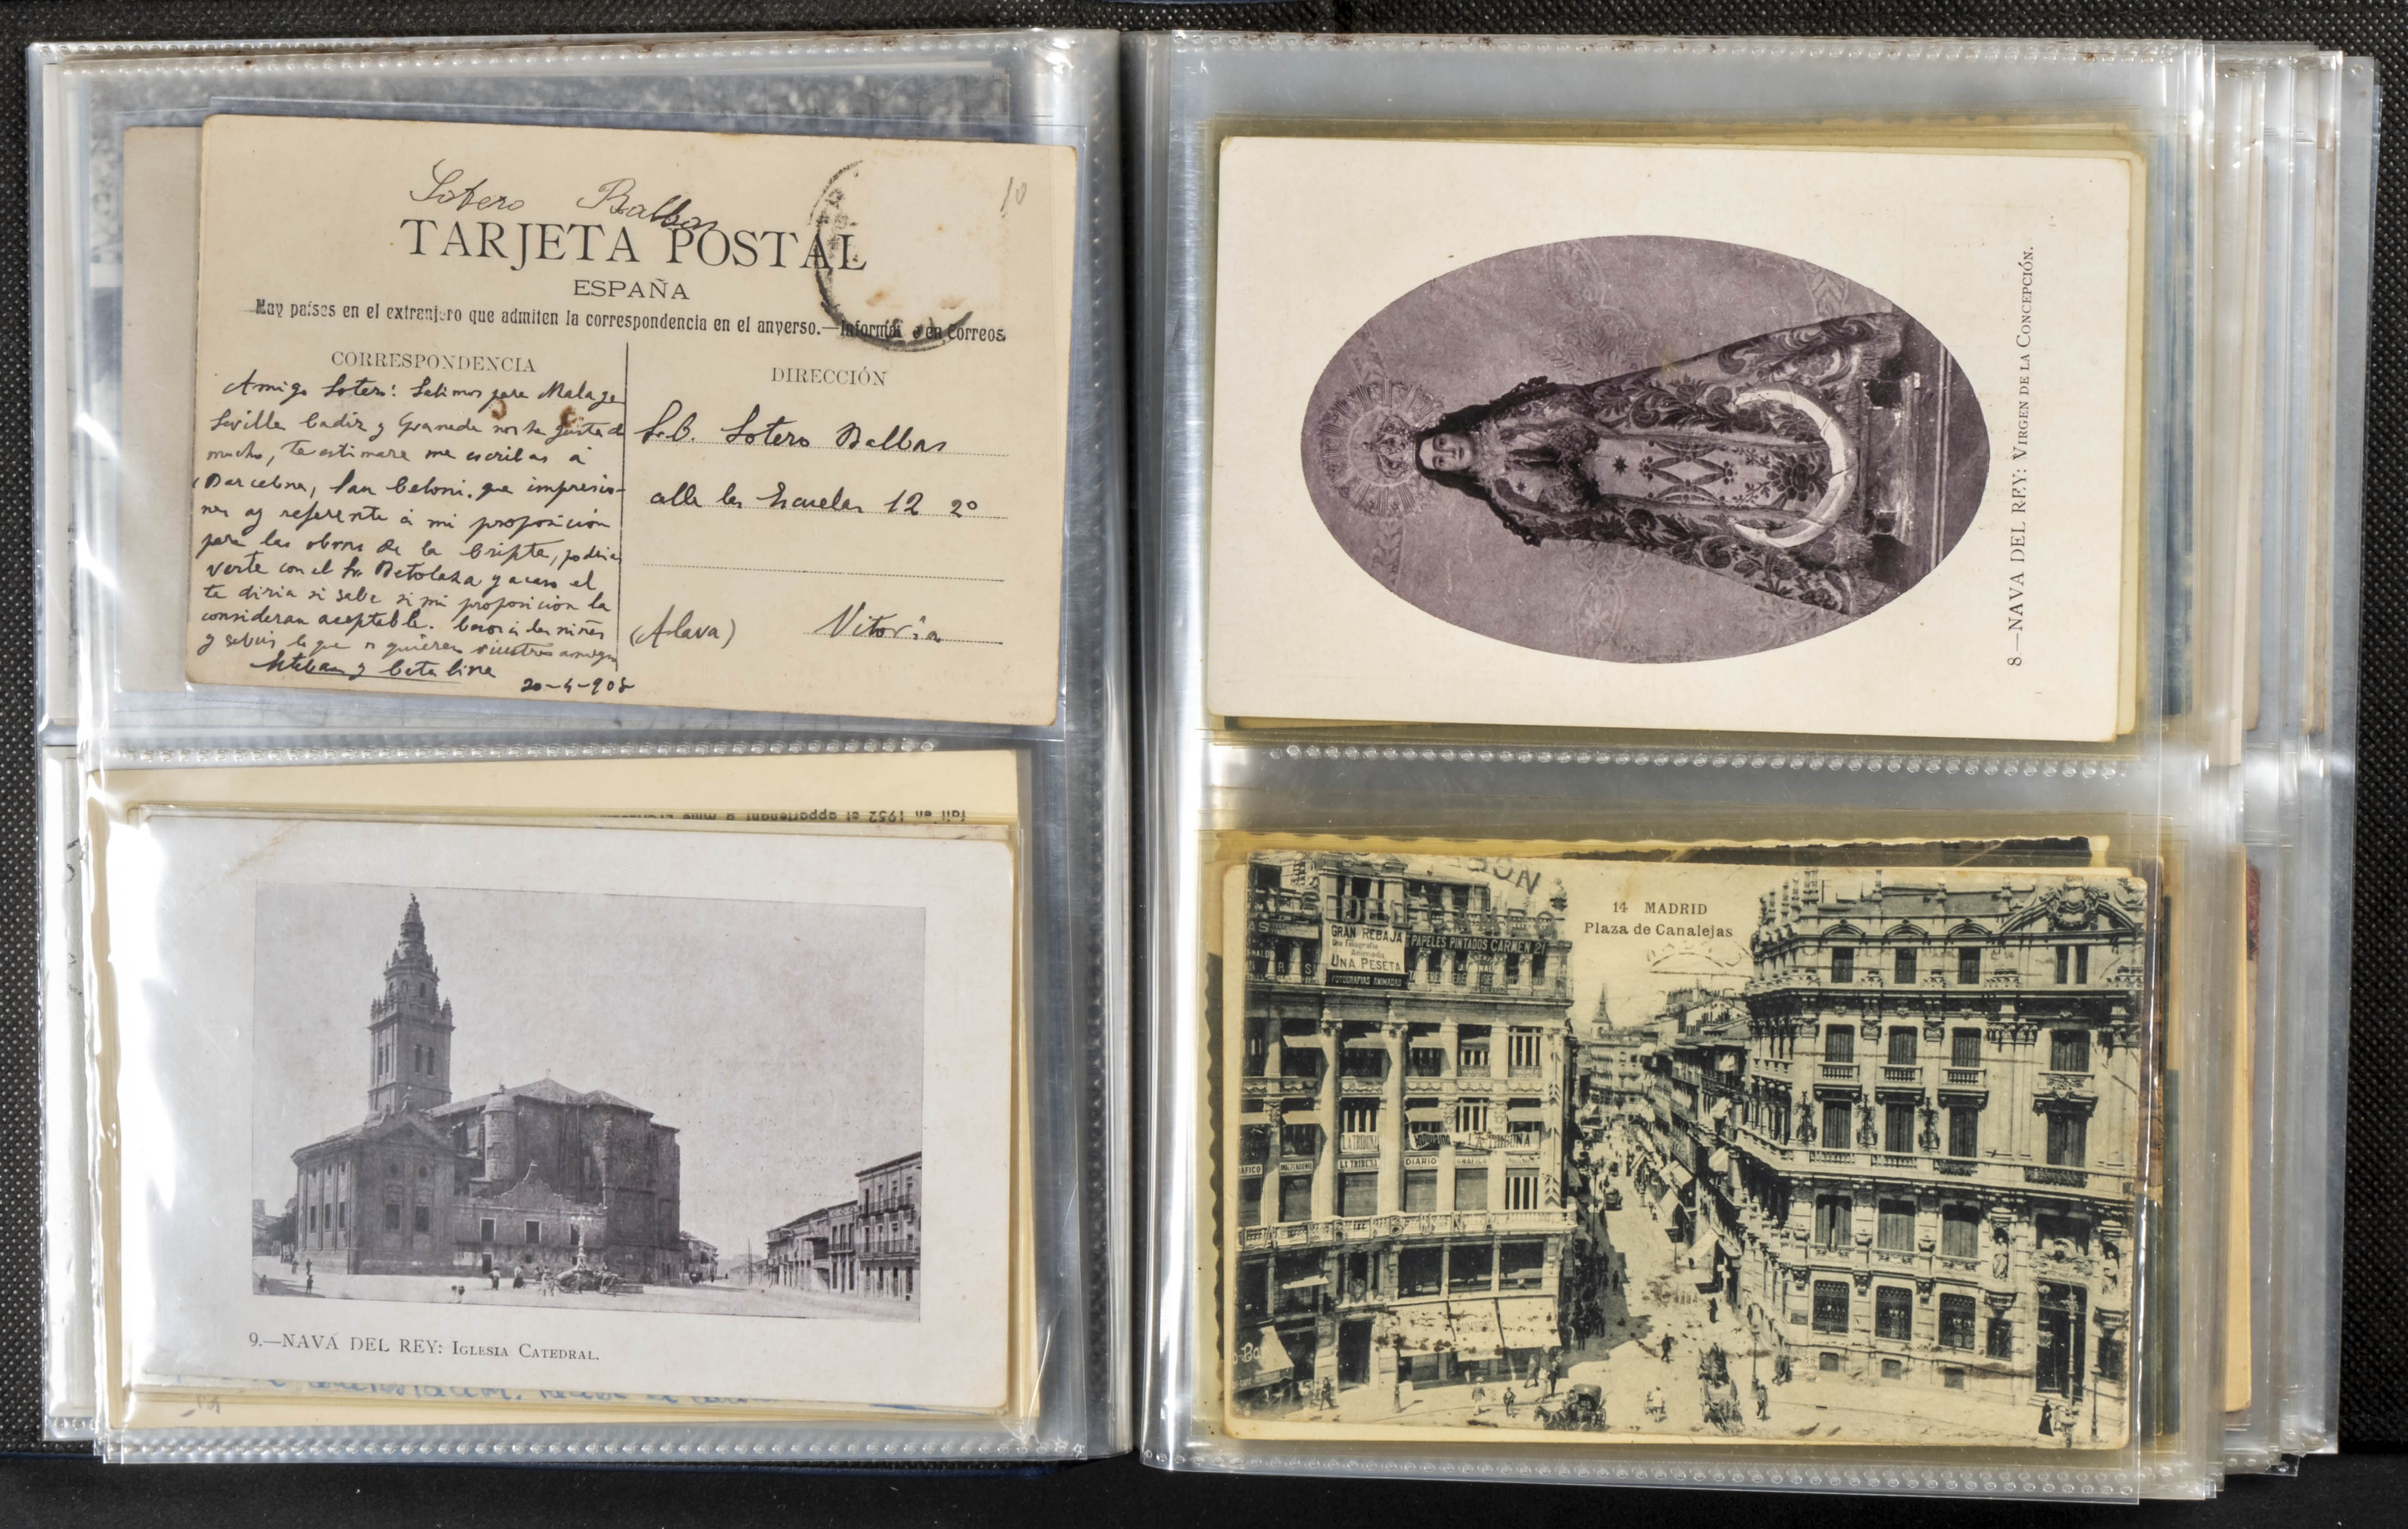 Sotero Balbas
10
TARJETA POSTAL
ESPAÑA
Hay países en el extranjero que admiten la correspondencia en el anverso.—Informar en Correos.
CORRESPONDENCIA
Amigo Sotero: Salimos para Malaga
Sevilla Cadiz y Granada nos ha gustado
mucho, te estimare me escribas a
Barcelona, San Celoni. que impresio-
nes ay referente a mi proposición
para las obras de la Cripta, podrias
verte con el Sr. Betolaza y acaso el
te diria si sabe si mi proposicion la
consideran aceptable. a las niñas
y sabeis lo que os quieren vuestros amigos
Esteban y Catalina
20-4-908
DIRECCIÓN
Sotero Balbas
calle las Escuelas 12 2º
(Alava) Vitoria
8.—NAVA DEL REY: VIRGEN DE LA CONCEPCIÓN.
fait en 1952 et appartenant à Mme
9.—NAVA DEL REY: IGLESIA CATEDRAL.
14 MADRID
Plaza de Canalejas
GRAN REBAJA
Una Fotografía
Animada
UNA PESETA
FOTOGRAFIAS ANIMADAS
PAPELES PINTADOS CARMEN 21
LA TRIBUNA
LA TRIBUNA
LA TRIBUNA
DIARIO GRAFICO